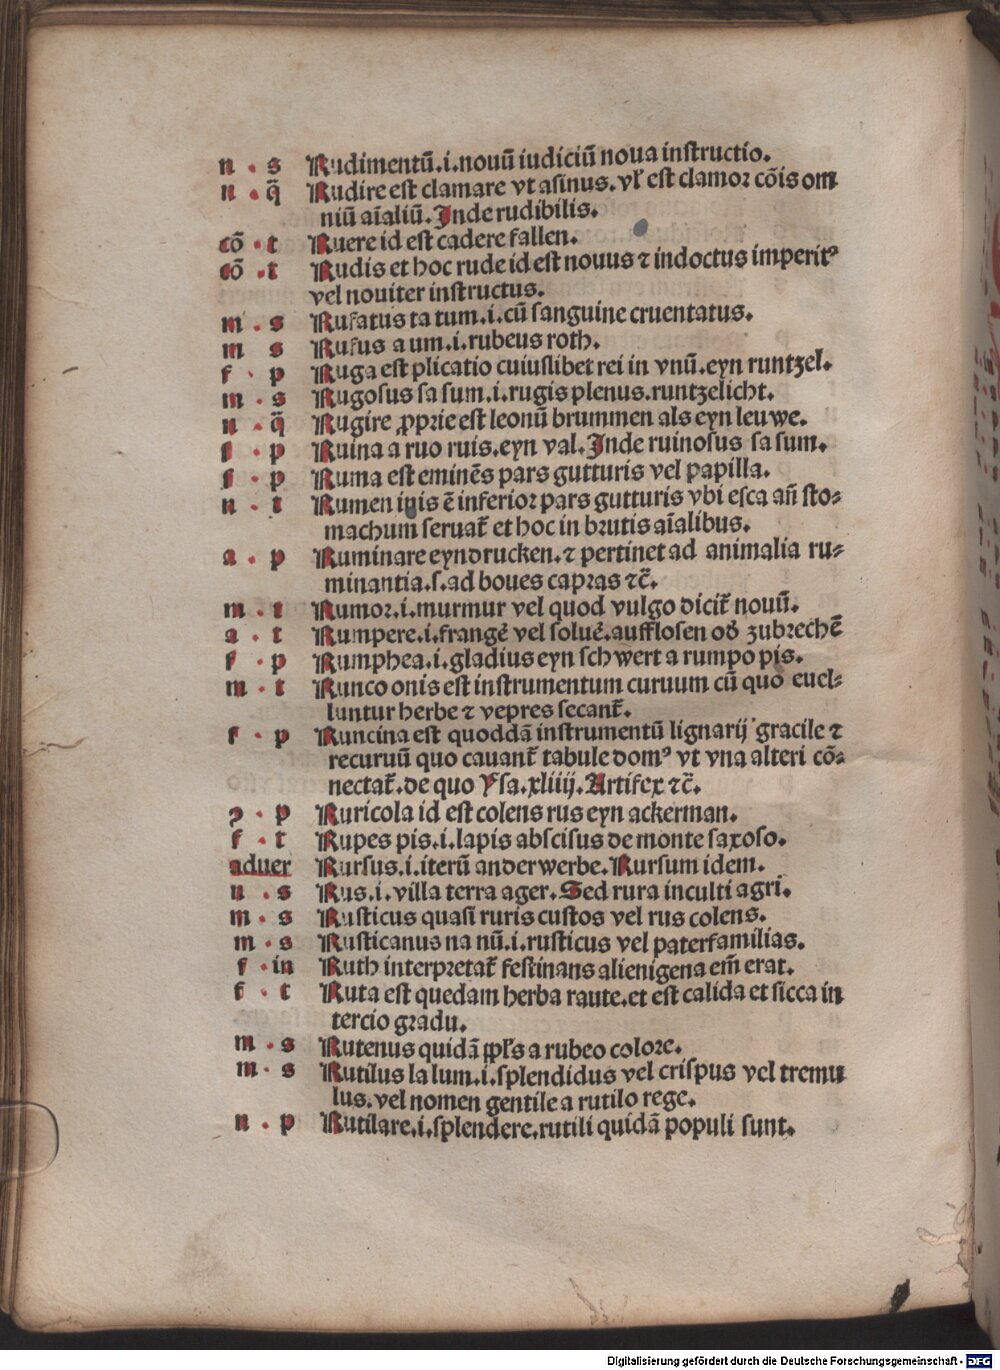 n . s Rudimentū.i.nouū iudiciū noua instructio.
n . q̄ Rudire est clamare vt asinus.vl' est clamor cōis om
niū aīaliū.Inde rudibilis.
cō . t Ruere id est cadere fallen.
cō . t Rudis et hoc rude id est nouus ⁊ indoctus imperitꝰ
vel nouiter instructus.
m . s Rufatus ta tum.i.cū sanguine cruentatus.
m s Rufus a um.i.rubeus roth.
f . p Ruga est plicatio cuiuslibet rei in vnū.eyn runtzel.
m . s Rugosus sa sum.i.rugis plenus.runtzelicht.
n . q̄ Rugire ꝓprie est leonū brummen als eyn leuwe.
f . p Ruina a ruo ruis.eyn val.Inde ruinosus sa sum.
f . p Ruma est eminēs pars gutturis vel papilla.
n . t Rumen inis ē inferior pars gutturis vbi esca an̄ sto⸗
machum seruat̄ et hoc in brutis aīalibus.
a . p Ruminare eyndrucken.⁊ pertinet ad animalia ru⸗
minantia.s.ad boues capras ⁊c̄.
m . t Rumor.i.murmur vel quod vulgo dicit̄ nouū.
a . t Rumpere.i.frangē vel soluē.aufflosen od̄ zubrechē
f . p Rumphea.i.gladius eyn schwert a rumpo pis.
m . t Runco onis est instrumentum curuum cū quo euel⸗
luntur herbe ⁊ vepres secant̄.
f . p Runcina est quoddā instrumentū lignarij gracile ⁊
recuruū quo cauant̄ tabule domꝰ vt vna alteri cō⸗
nectat̄.de quo Ysa.xliiij.Artifex ⁊c̄.
ꝯ . p Ruricola id est colens rus eyn ackerman.
f . t Rupes pis.i.lapis abscisus de monte saxoso.
aduer Rursus.i.iterū anderwerbe.Rursum idem.
n . s Rus.i.villa terra ager.Sed rura inculti agri.
m . s Rusticus quasi ruris custos vel rus colens.
m . s Rusticanus na nū.i.rusticus vel paterfamilias.
f . in Ruth interpretat̄ festinans alienigena em̄ erat.
f . t Ruta est quedam herba raute.et est calida et sicca in
tercio gradu.
m . s Rutenus quidā ppl's a rubeo colore.
m . s Rutilus la lum.i.splendidus vel crispus vel tremu
lus.vel nomen gentile a rutilo rege.
n . p Rutilare.i.splendere.rutili quidā populi sunt.
Digitalisierung gefördert durch die Deutsche Forschungsgemeinschaft - DFG